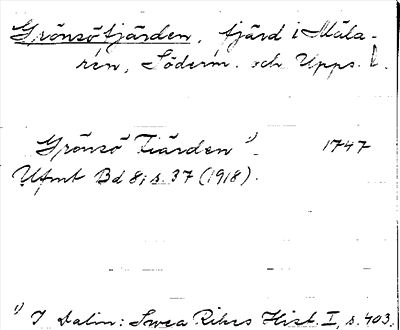 Grönsöfjärden, fjärd i Mäla-
ren, Söderm. och Upps. l.
Grönsö Fiärden ¹⁾ 1747
Ufmt Bd 8; s. 37 (1918).
¹⁾ I Dalin: Svea Rikes Hist. I, s. 403.